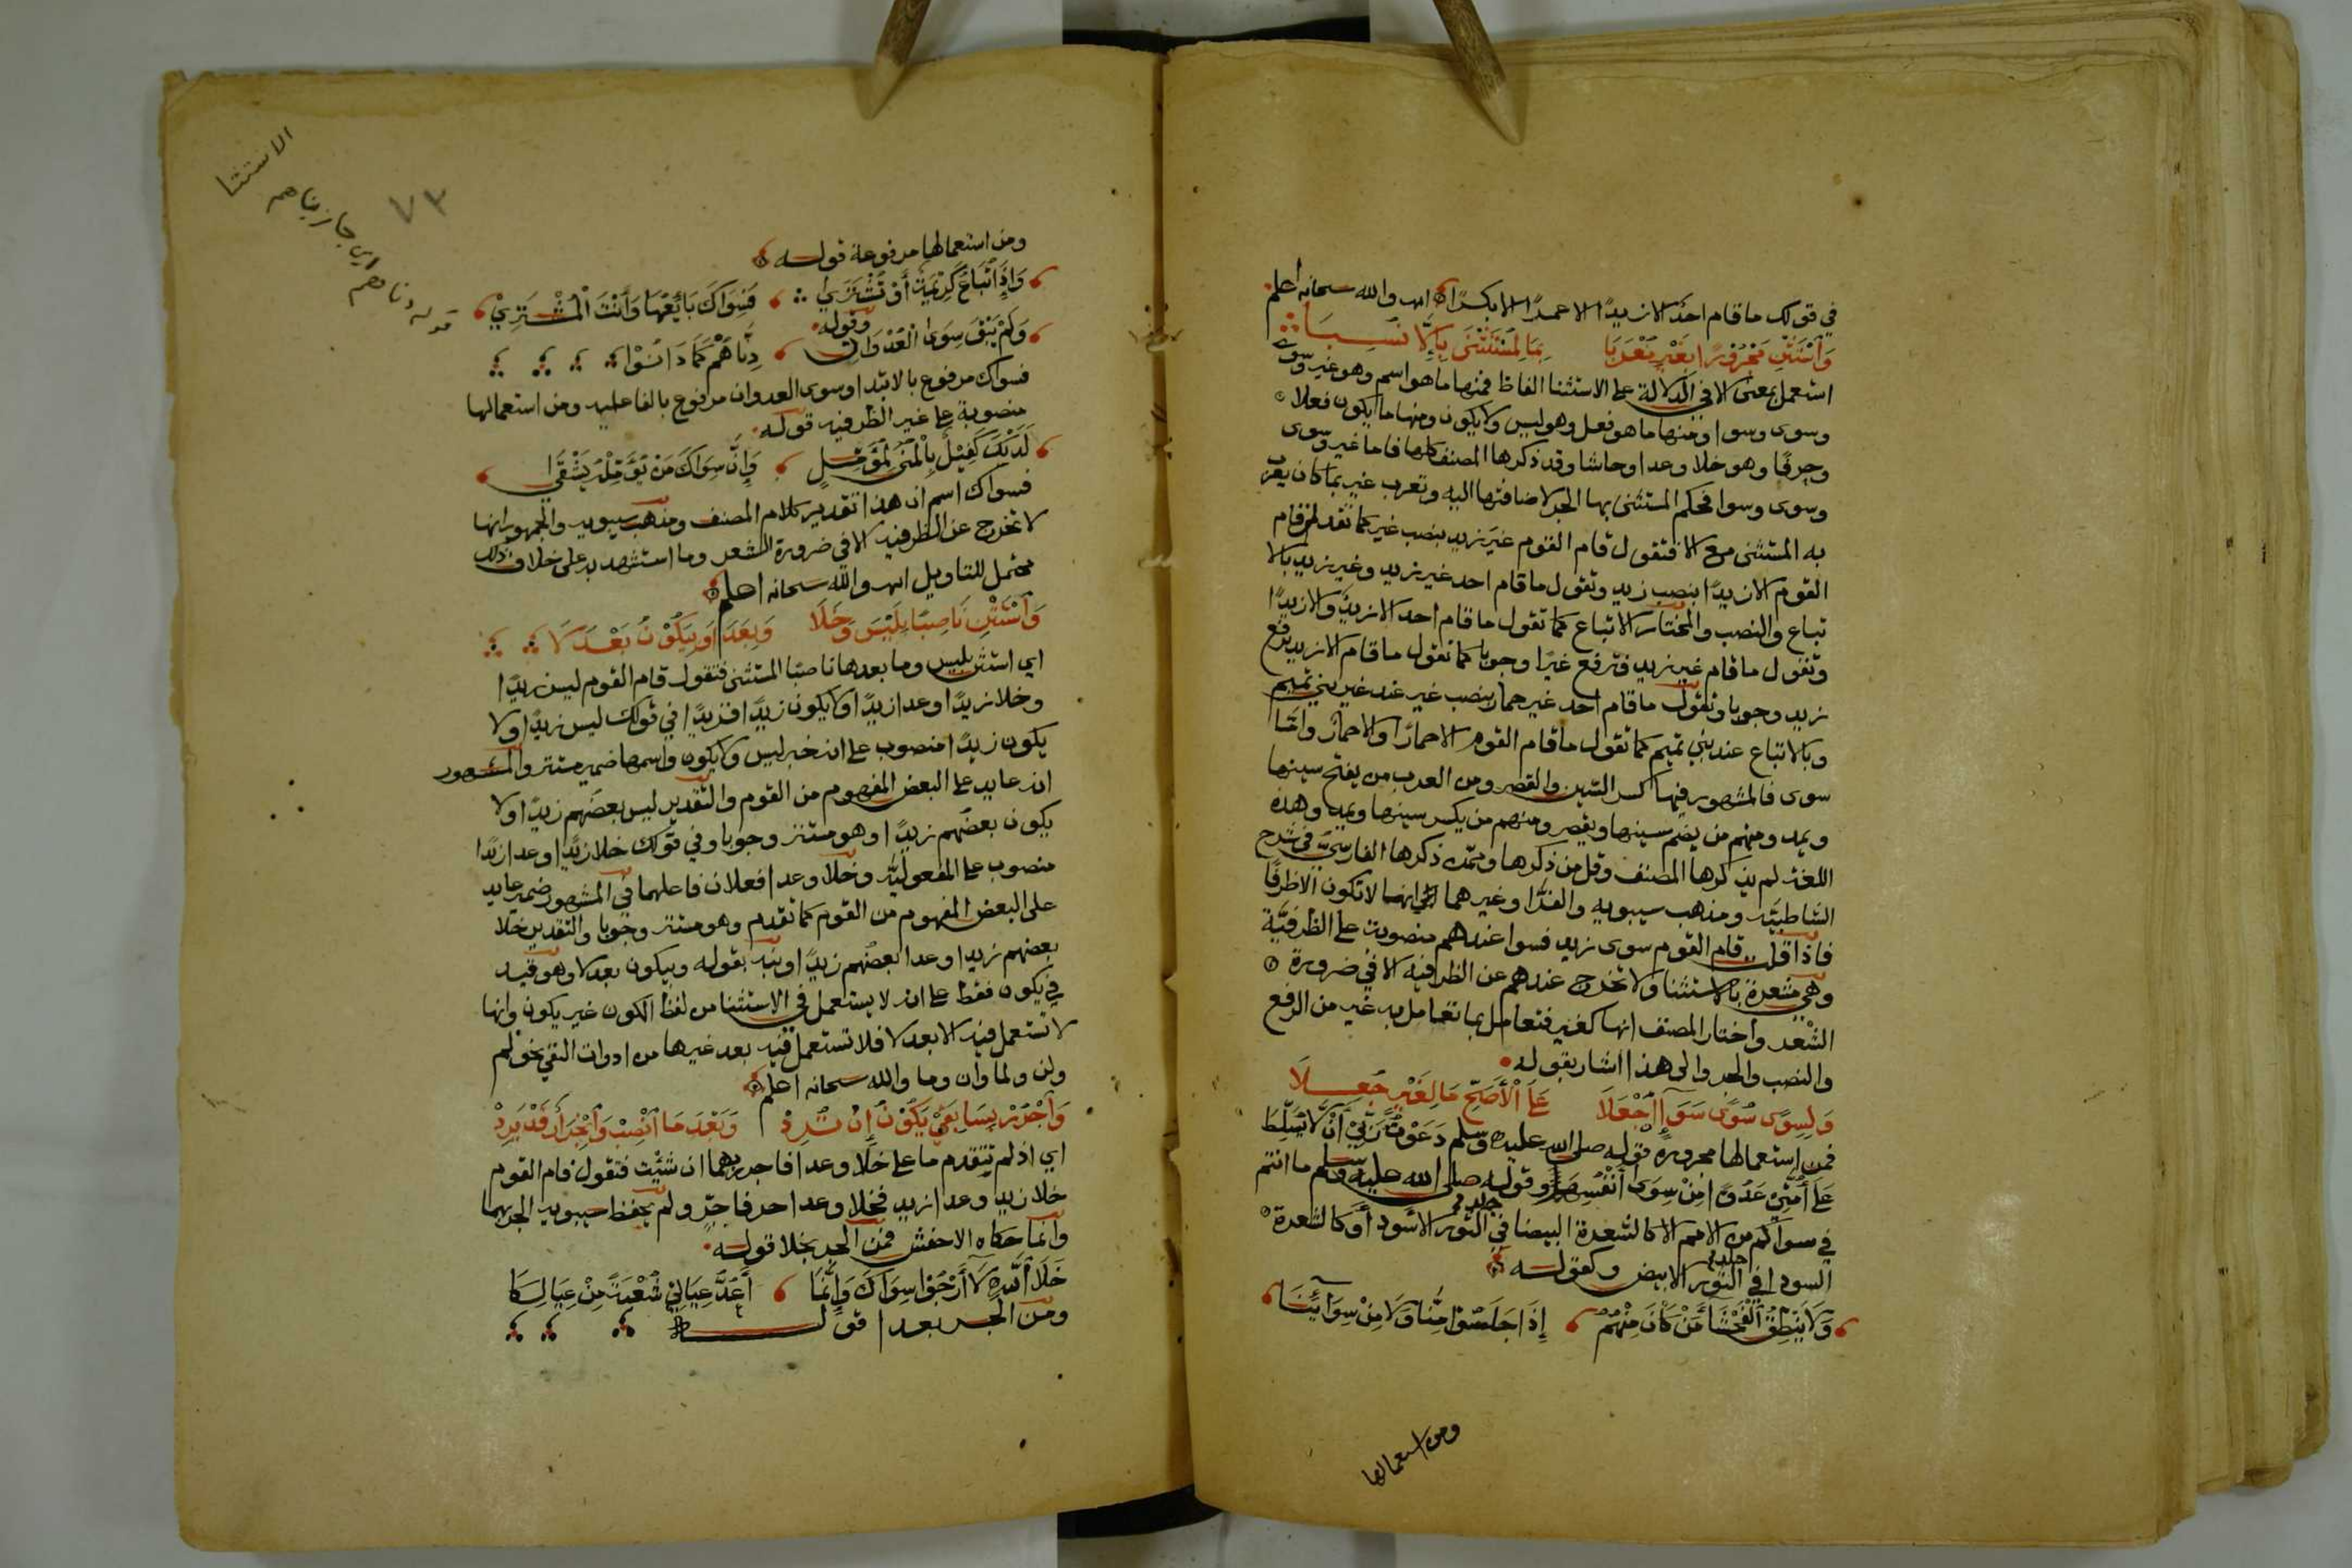 في قولك ما قام احد الا زيدًا الا عمرًا الا بكرًا اهـ والله سبحانه اعلم
وَاسْتَثْنِ مَجْرُوْرًا بِغَيْرٍ مُعْرَبَا بِمَا لِمُسْتَثْنًى بِاِلَّا نُسِبَا
استعمل بمعنى الا في الدلالة على الاستثنا الفاظ فمنها ما هو اسم وهو غير وسوى
وسوى وسوا ومنها ما هو فعل وهو ليس ولا يكون ومنها ما يكون فعلا
وحرفًا وهو خلا وعدا وحاشا وقد ذكرها المصنف كلها فاما غير وسوى
وسوى وسوا فحكم المستثنى بها الجر لاضافتها اليه وتعرب غير بما كان يعرب
به المستثنى مع الا فتقول قام القوم غيرَ زيد بنصب غير كما تقدم قام
القوم الا زيدًا بنصب زيد وتقول ما قام احد غير زيد وغير زيد بالا
تباع والنصب والمختار الاتباع كما تقول ما قام احد الا زيدٌ والا زيدًا
وتقول ما قام غير زيد فترفع غيرًا وجوبا كما تقول ما قام الا زيد برفع
زيد وجوبا وتقول ما قام احد غير حمار بنصب غير عند غير بني تميم
وبالاتباع عند بني تميم كما تقول ما قام القوم الا حمارًا والا حمارٌ وامّا
سوى فالمشهور فيها كسر السّين والقصر ومن العرب من يفتح سينها
ويمد ومنهم من يضم سينها ويقصر ومنهم من يكسر سينها ويمد وهذه
اللغة لم يذكرها المصنف وقل من ذكرها وممّن ذكرها الفارسيّ في شرح
الشاطبيّة ومذهب سيبويه والفرّا وغيرهما الى انها لا تكون الا ظرفًا
فاذا قلت قام القوم سوى زيد فسوا عندهم منصوبة على الظرفيّة
وهي مشعرة بالاستثنا ولا تخرج عندهم عن الظرفية الا في ضرورة
الشعر واختار المصنف انها كغير فتعامل بما تعامل به غير من الرفع
والنصب والجر والى هذا اشار بقوله
وَلِسِوًى سُوًى سَوَآءٍ اجْعَلَا عَلَى الْأَصَحِّ مَا لِغَيْرٍ جُعِلَا
فمن استعمالها مجرورة قوله صلى الله عليه وسلم دَعَوْتُ رَبِّيْ أَنْ لَا يُسَلِّطَ
عَلَى أُمَّتِيْ عَدُوًّا مِنْ سِوَى أَنْفُسِهَا وقوله صلى الله عليه وسلم ما انتم
في سواكم من الامم الا كالشعرة البيضا في جلد الثور الاسود أَو كالشعرة
السودا في جلد الثور الابيض وكقوله
وَلَا يَنْطِقُ الْفَحْشَا مَنْ كَانَ مِنْهُمُ إِذَا جَلَسُوْا مِنَّا وَلَا مِنْ سِوَائِنَا
ومن استعمالها
الاستثنا
٧٣
قوله دناهم اي جازيناهم
ومن استعمالها مرفوعة قوله
وَاِذَا تُبَاعُ كَرِيْمَةٌ أَوْ تُشْتَرَى فَسِوَاكَ بَايِعُهَا وَأَنْتَ الْمُشْتَرِيْ
وقوله
وَلَمْ يَبْقَ سِوَى الْعُدْوَانِ دِنَّاهُمْ كَمَا دَانُوْا
فسواك مرفوع بالابتدا وسوى العدوان مرفوع بالفاعلية ومن استعمالها
منصوبة على غير الظرفية قوله
لَدَيْكَ كَفِيْلٌ بِالْمُنَى لِمُؤَمِّلٍ وَإِنَّ سِوَاكَ مَنْ يُؤَمِّلْهُ يَشْقَى
فسواك اسم ان هذا تقدير كلام المصنف ومذهب سيبويه والجمهور انها
لا تخرج عن الظرفية الا في ضرورة الشعر وما استشهد به على خلاف ذلك
محتمل للتاويل اهـ والله سبحانه اعلم
وَاسْتَثْنِ نَاصِبًا بِلَيْسَ وَخَلَا وَبِعَدَا وَبِيَكُوْنُ بَعْدَ لَا
اي استثن بليس وما بعدها ناصبًا المستثنى فتقول قام القوم ليس زيدًا
وخلا زيدًا وعدا زيدًا ولا يكون زيدًا فزيدًا في قولك ليس زيدًا ولا
يكون زيدًا منصوب على انه خبر ليس ولا يكون واسمها ضمير مستتر والمشهور
انه عايد على البعض المفهوم من القوم والتقدير ليس بعضهم زيدًا ولا
يكون بعضهم زيدًا وهو مستتر وجوبا وفي قولك خلا زيدًا وعدا زيدًا
منصوب على المفعوليّة وخلا وعدا فعلان فاعلهما في المشهور ضمير عايد
على البعض المفهوم من القوم كما تقدم وهو مستتر وجوبا والتقدير خلا
بعضهم زيدا وعدا بعضهم زيدًا ونبه بقوله وبيكون بعد لا وهو قيد
في يكون فقط على انه لا يستعمل في الاستثنا من لفظ الكون غير يكون وانها
لا تستعمل فيه الا بعد لا فلا تستعمل فيه بعد غيرها من ادوات النفي نحو لم
ولن ولما وان وما والله سبحانه اعلم
وَاجْرُرْ بِسَابِقَيْ يَكُوْنُ إِنْ تُرِدْ وَبَعْدَ مَا انْصِبْ وَانْجِرَارٌ قَدْ يَرِدْ
اي اذا لم تتقدم ما على خلا وعدا فاجرر بهما ان شئت فتقول قام القوم
خلا زيد وعدا زيد فخلا وعدا حرفا جرّ ولم يحفظ سيبويه الجر بهما
وانما حكاه الاخفش فمن الجر بخلا قوله
خَلَا اللهِ لَا أَرْجُوْا سِوَاكَ وَإِنَّمَا أَعُدُّ عِيَالِيْ شُعْبَةً مِنْ عِيَالِكَا
ومن الجر بعدا قوله